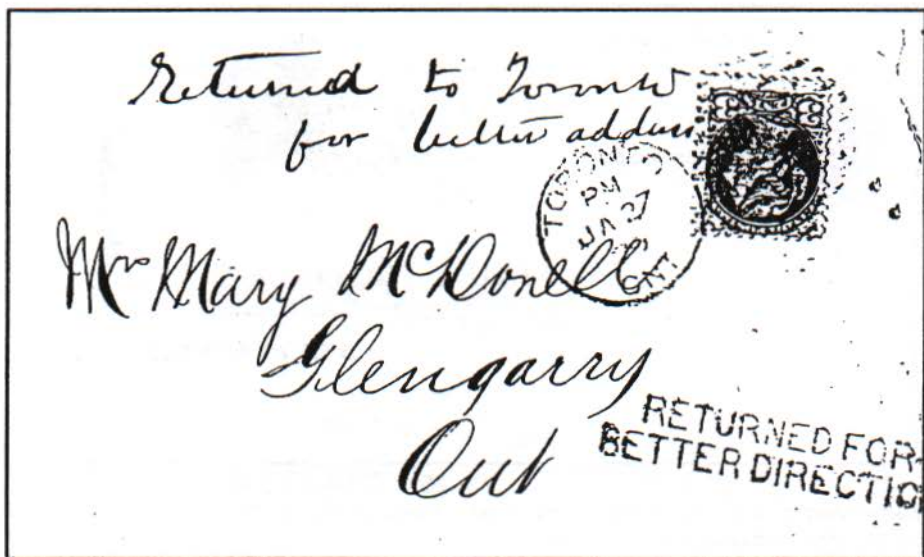 Returned to Toronto
for better address
TORONTO
PM
JA 27
ONT
Mrs Mary McDonell
Glengarry
Ont
RETURNED FOR
BETTER DIRECTIO